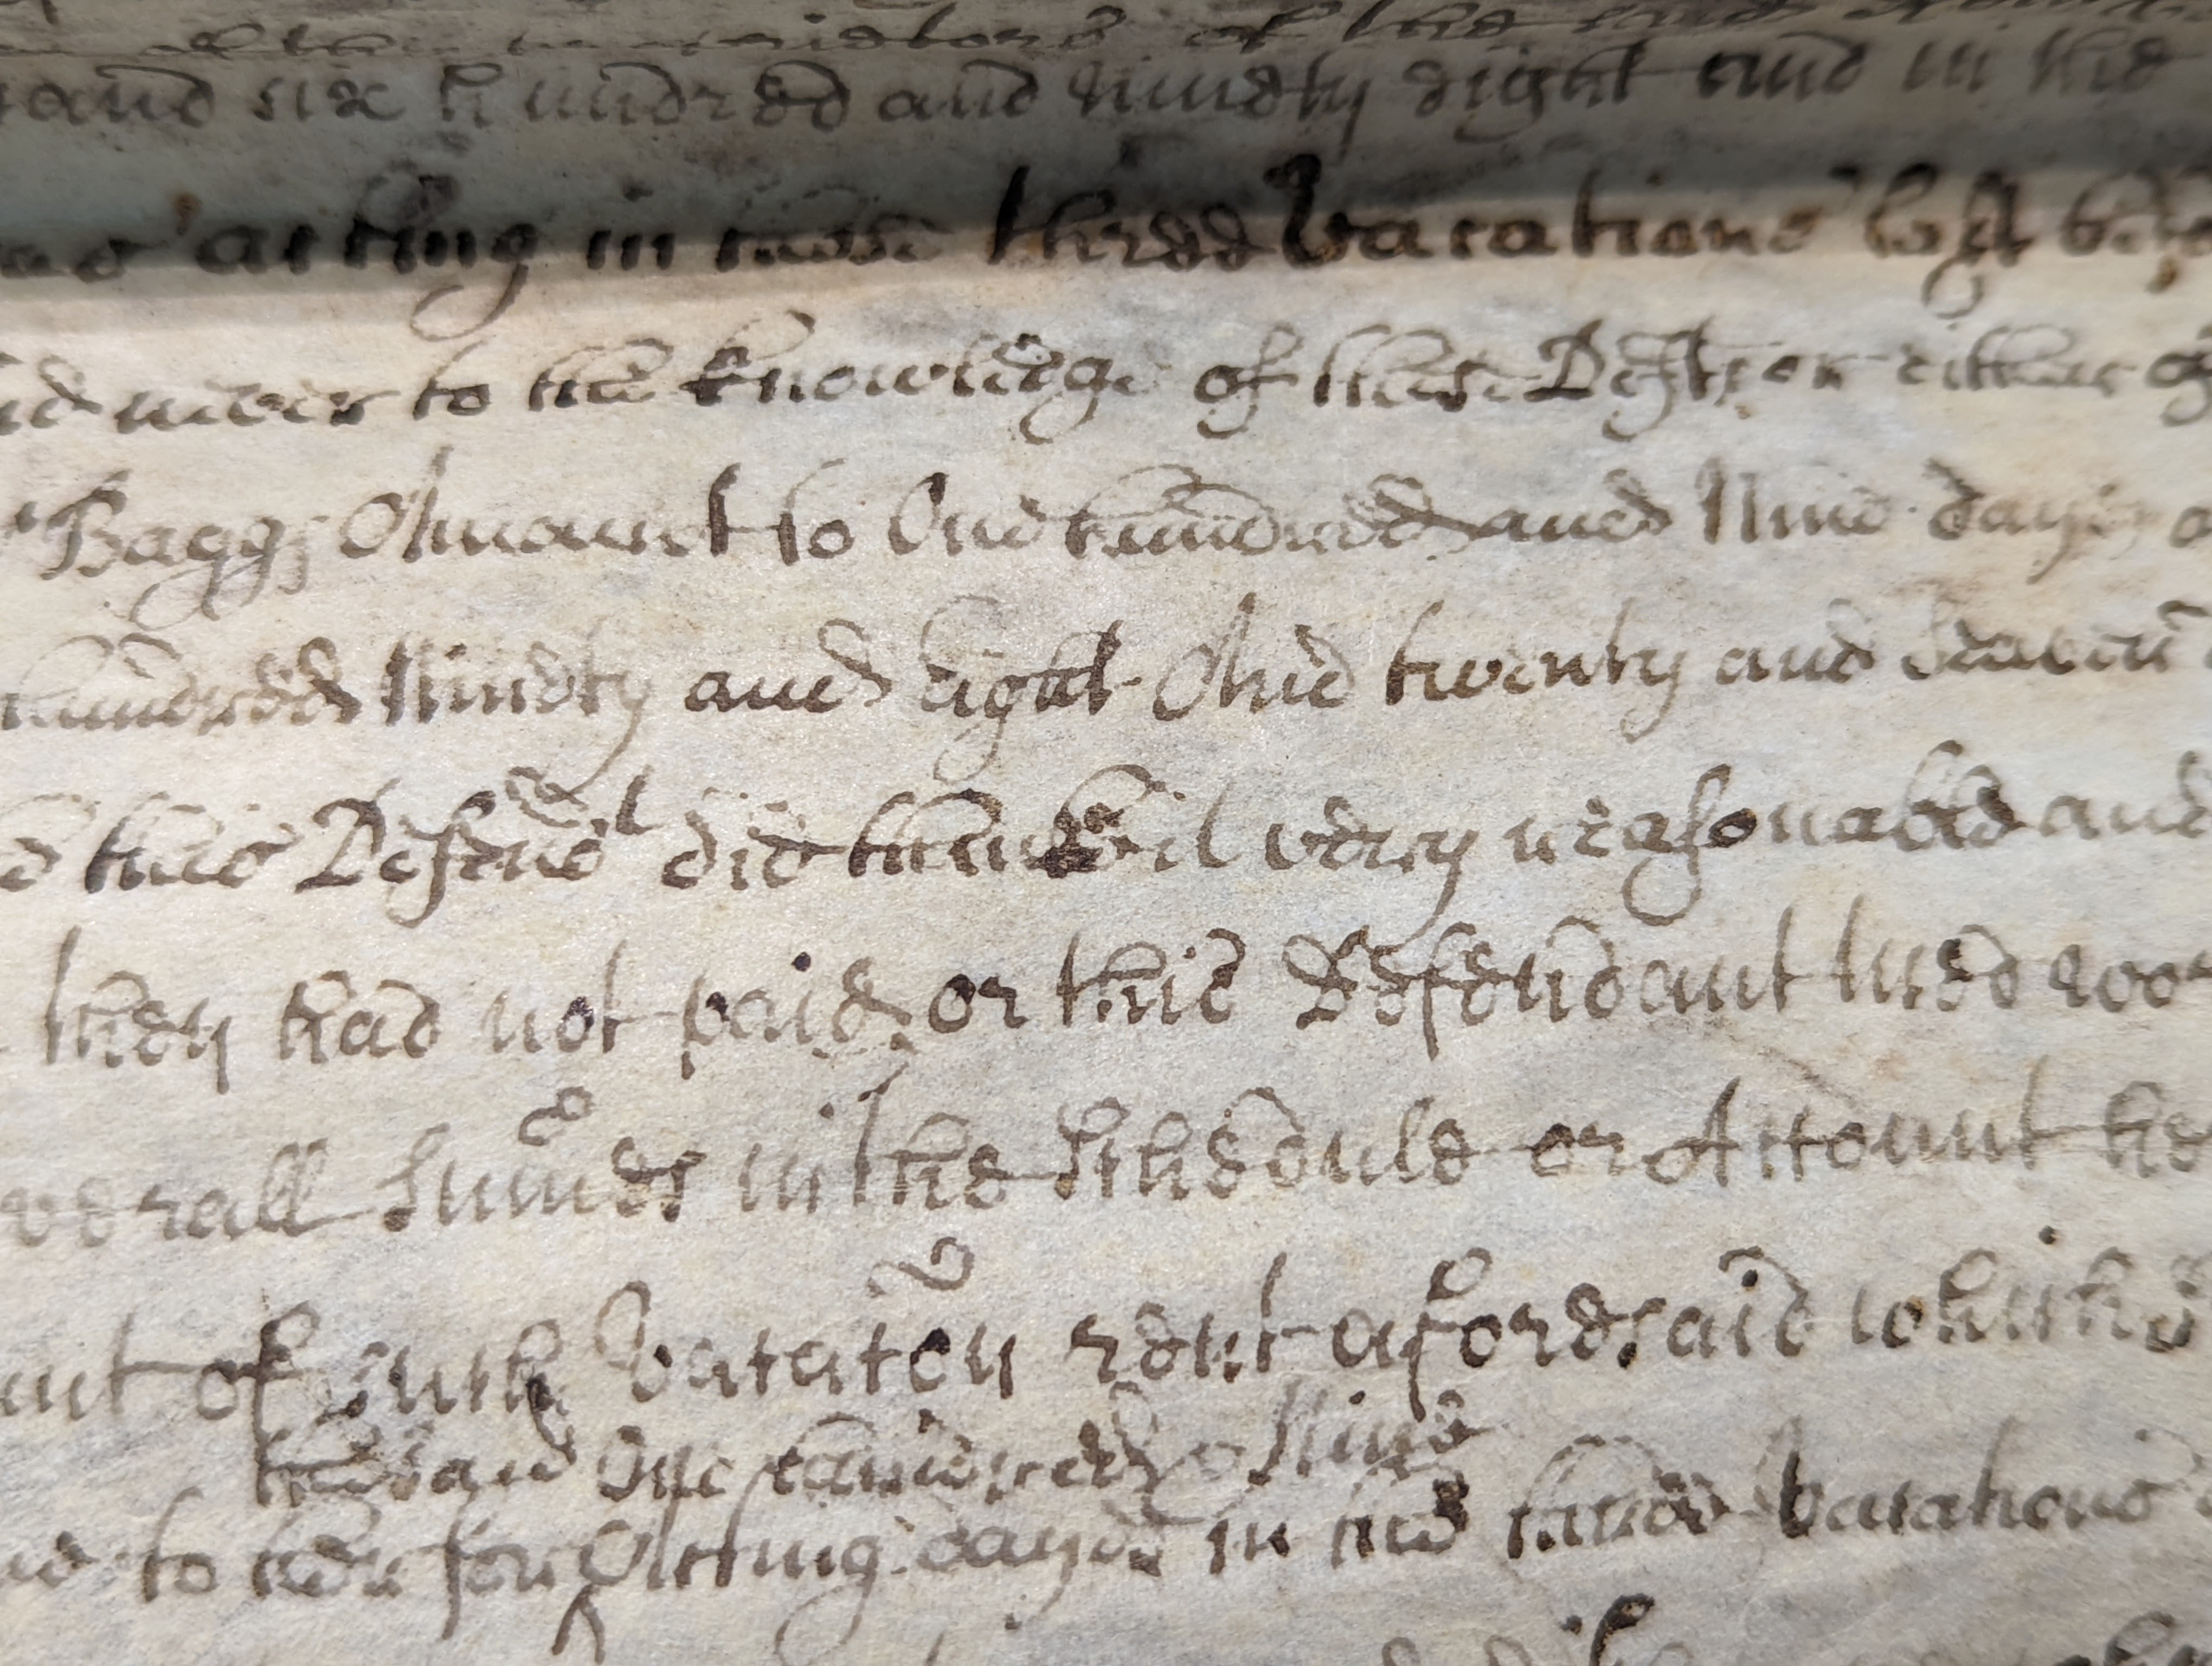 of the said
and six hundred and Nindty eight and in the
acting in those three Vacations last
never to the knowledge of these Defts or either of
Baggs Amount to One hundred and Nine dayes
hundred Nindty and eight And twenty and Seaven
this Defend^t did think it very reasonable and
they had not paid or this Defendant
verall Sumes in the Schedule or Account
of such Vacacon rent aforesaid which
thousand One hundred & Nine
to her for ^ Acting dayes in the three Vacations